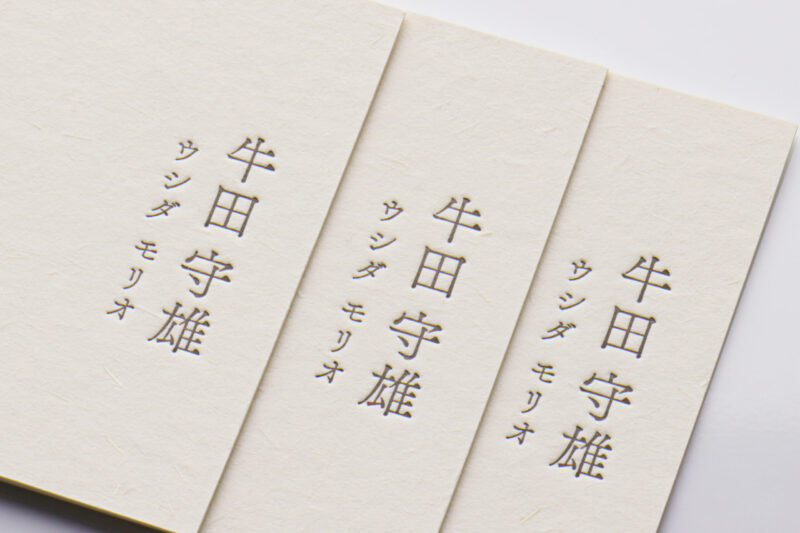 牛田 守雄
ウシダ モリオ
牛田 守雄
ウシダ モリオ
牛田 守雄
ウシダ モリオ